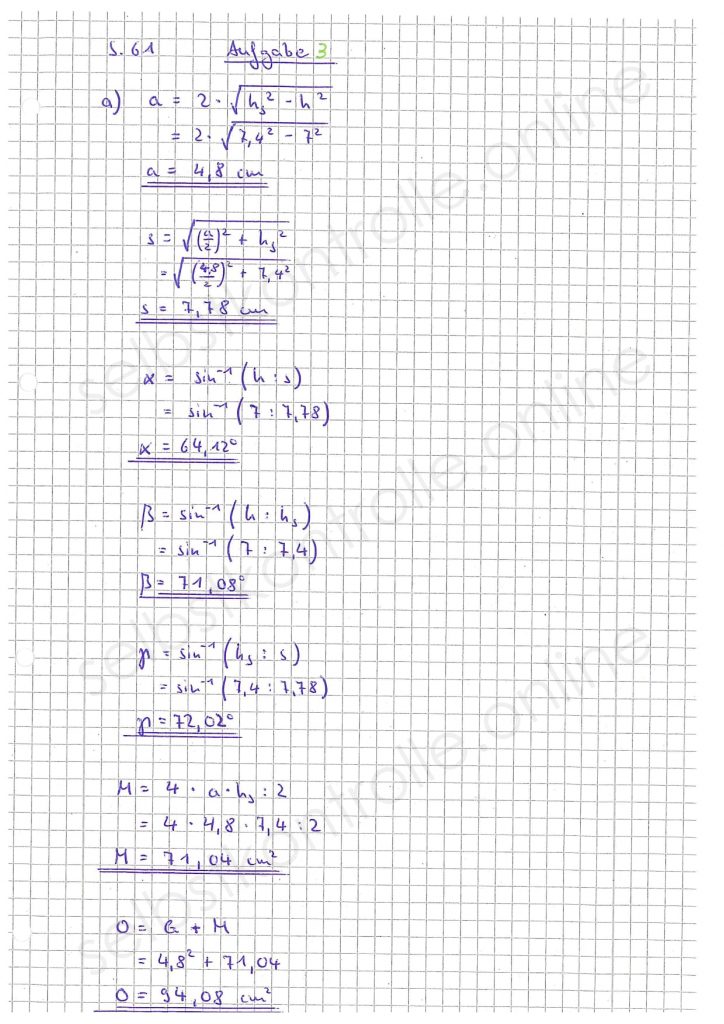 S. 61 Aufgabe 3
a) a = 2 · √(hₛ² - h²)
= 2 · √(7,4² - 7²)
a = 4,8 cm
s = √((a/2)² + hₛ²)
= √((4,8/2)² + 7,4²)
s = 7,78 cm
α = sin⁻¹ (h : s)
= sin⁻¹ (7 : 7,78)
α = 64,12°
β = sin⁻¹ (h : hₛ)
= sin⁻¹ (7 : 7,4)
β = 71,08°
γ = sin⁻¹ (hₛ : s)
= sin⁻¹ (7,4 : 7,78)
γ = 72,02°
M = 4 · a · hₛ : 2
= 4 · 4,8 · 7,4 : 2
M = 71,04 cm²
O = G + M
= 4,8² + 71,04
O = 94,08 cm²
selbstkontrolle.online
selbstkontrolle.online
selbstkontrolle.online